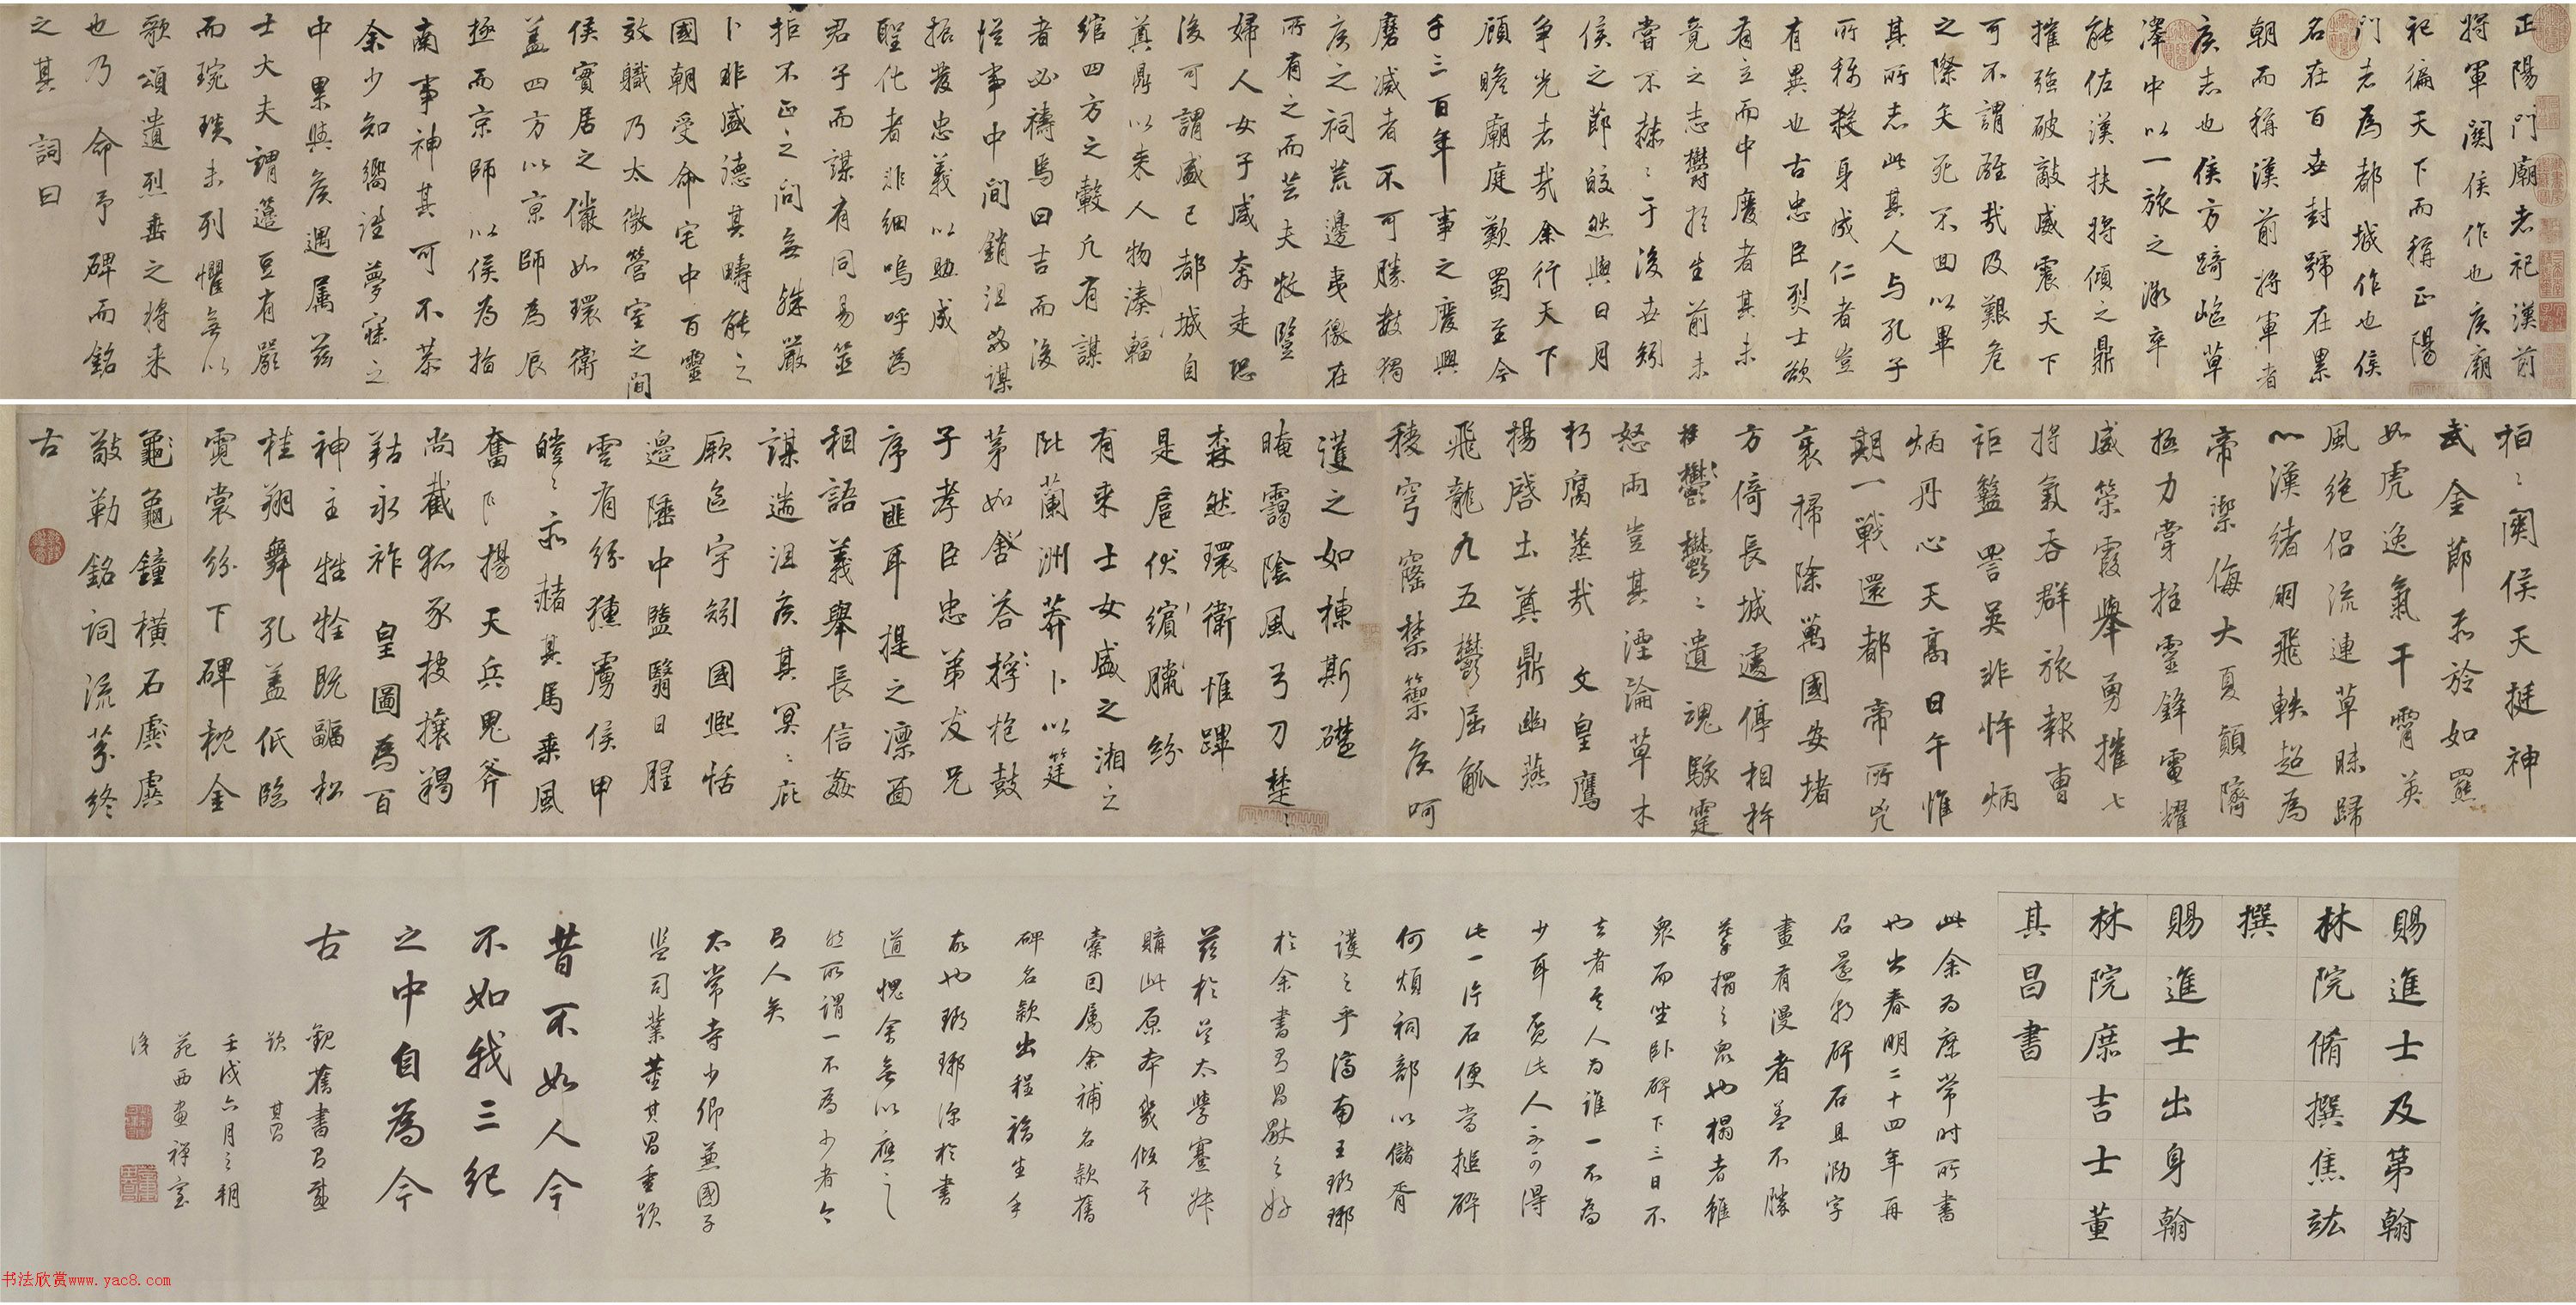 正陽門廟者祀漢前
將軍關侯作也侯廟
祀徧天下而稱正陽
門者為都城作也侯
名在百世封號在累
朝而稱漢前將軍者
侯志也侯方踦嶇草
澤中以一旅之溦卒
能佐漢扶將傾之鼎
摧強破敵威震天下
可不謂雄哉及艱危
之際矢死不回以畢
其所志此其人与孔子
所稱殺身成仁者豈
有異也古忠臣烈士欲
有立而中廢者其未
竟之志鬱于生前未
嘗不赫〻于後世矧
侯之節皎然與日月
争光者哉余行天下
顧瞻廟庭歎蜀至今
千三百年事之廢興
磨滅者不可勝數獨
侯之祠荒邊夷徼在
所有之而芸夫牧豎
婦人女子咸奔走恐
後可謂盛已都城自
奠鼎以来人物湊輻
綰四方之轂凡有謀
者必禱焉曰吉而後
從事中間銷沮姦謀
振發忠義以助成
聖化者非細嗚呼為
君子而謀有同易筮
拒不正之问無殊嚴
卜非盛德其疇能之
國朝受命宅中百靈
效軄乃太微營室之間
侯實居之儼如環衛
蓋四方以京師為辰
極而京師以侯為指
南事神其可不恭
余少知嚮往夢寐之
中累與侯遇属茲
士大夫謂籩豆有嚴
而琬琰未列懼無以
歌頌遺烈垂之將来
也乃命予碑而銘
之其詞曰
桓〻關侯天挺神
武金節赤於如羆
如虎逸氣干霄英
風絶侣流連草昧歸
心漢緒羽飛軼超為
帝禦侮大夏顛隮
極力掌拄靈鋒電燿
威筞霞舉勇摧七
將氣吞群旅報曹
詎盬詈吳非忤炳
炳丹心天高日午惟
期一戰還都帝所兇
衰掃除萬國安堵
方倚長城遽停相杵
鬱鬱〻遺魂駭霆
怒雨豈其湮淪草木
朽腐烝哉文皇鷹
揚啓土奠鼎幽燕
飛龍九五鬱屈觚
稜穹窿禁籞侯呵
護之如棟斯礎
晻靄陰風弓刀楚〻
森然環衛惟蹕
是扈伏緬臘紛
有来士女盛之湘之
阰蘭洲莽卜以筳
茅如答桴枹鼓
子孝臣忠弟友兄
序匪耳提之凛面
相語義舉長信姦
謀遄沮侯其冥〻庇
厥區宇矧國熙恬
邊陲中盬翳日腥
雲有紛獯虜侯甲
皚〻亦赭其馬乘風
奮𠂆揚天兵鬼斧
尚截狐豕披攘羯
羖永祚皇圖為百
神主牲牷既䰙松
桂翔舞孔蓋低臨
霓裳紛下碑枕金
龜鐘横石虡
敲勒銘詞流芬终
古
賜進士及第翰
林院脩撰焦竑
撰
賜進士出身翰
林院庶吉士董
其昌書
此余為庶常时所書
也出春明二十四年再
召還朝碑石且泐字
畫有漫者盖不勝
摹搨之衆也搨者雖
衆而坐卧碑下三日不
去者其人为誰一不為
少耳覓此人之不可得
此一片石便當搥碎
何煩祠部以儲胥
護之乎濟南王瑯琊
於余書有昌歜之好
茲於吳太學蹇姊
購此原本幾傾其
橐因属余補名款舊
碑名款出程福生手
故也瑯琊深於書
道愧余無以應之
然所謂一不為少者今
有人矣
太常寺少卿蒹國子
监司業董其昌重题
昔不如人今
不如我三紀
之中自為今
古
觀舊書有感
题 其昌
壬戌六月之朔
苑西画禅室
識
书法欣赏www.yac8.com